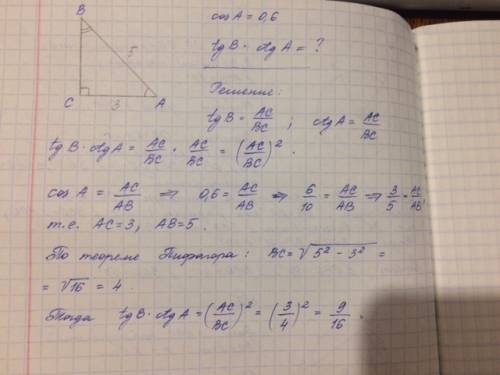 B
5
C
3
A
cos A = 0,6
tg B · ctg A = ?
Решение:
tg B = AC/BC ; ctg A = AC/BC
tg B · ctg A = AC/BC · AC/BC = (AC/BC)² .
cos A = AC/AB ⇒ 0,6 = AC/AB ⇒ 6/10 = AC/AB ⇒ 3/5 = AC/AB,
т.е. AC=3, AB=5.
По теореме Пифагора: BC = √5² − 3² =
= √16 = 4.
Тогда tg B · ctg A = (AC/BC)² = (3/4)² = 9/16.